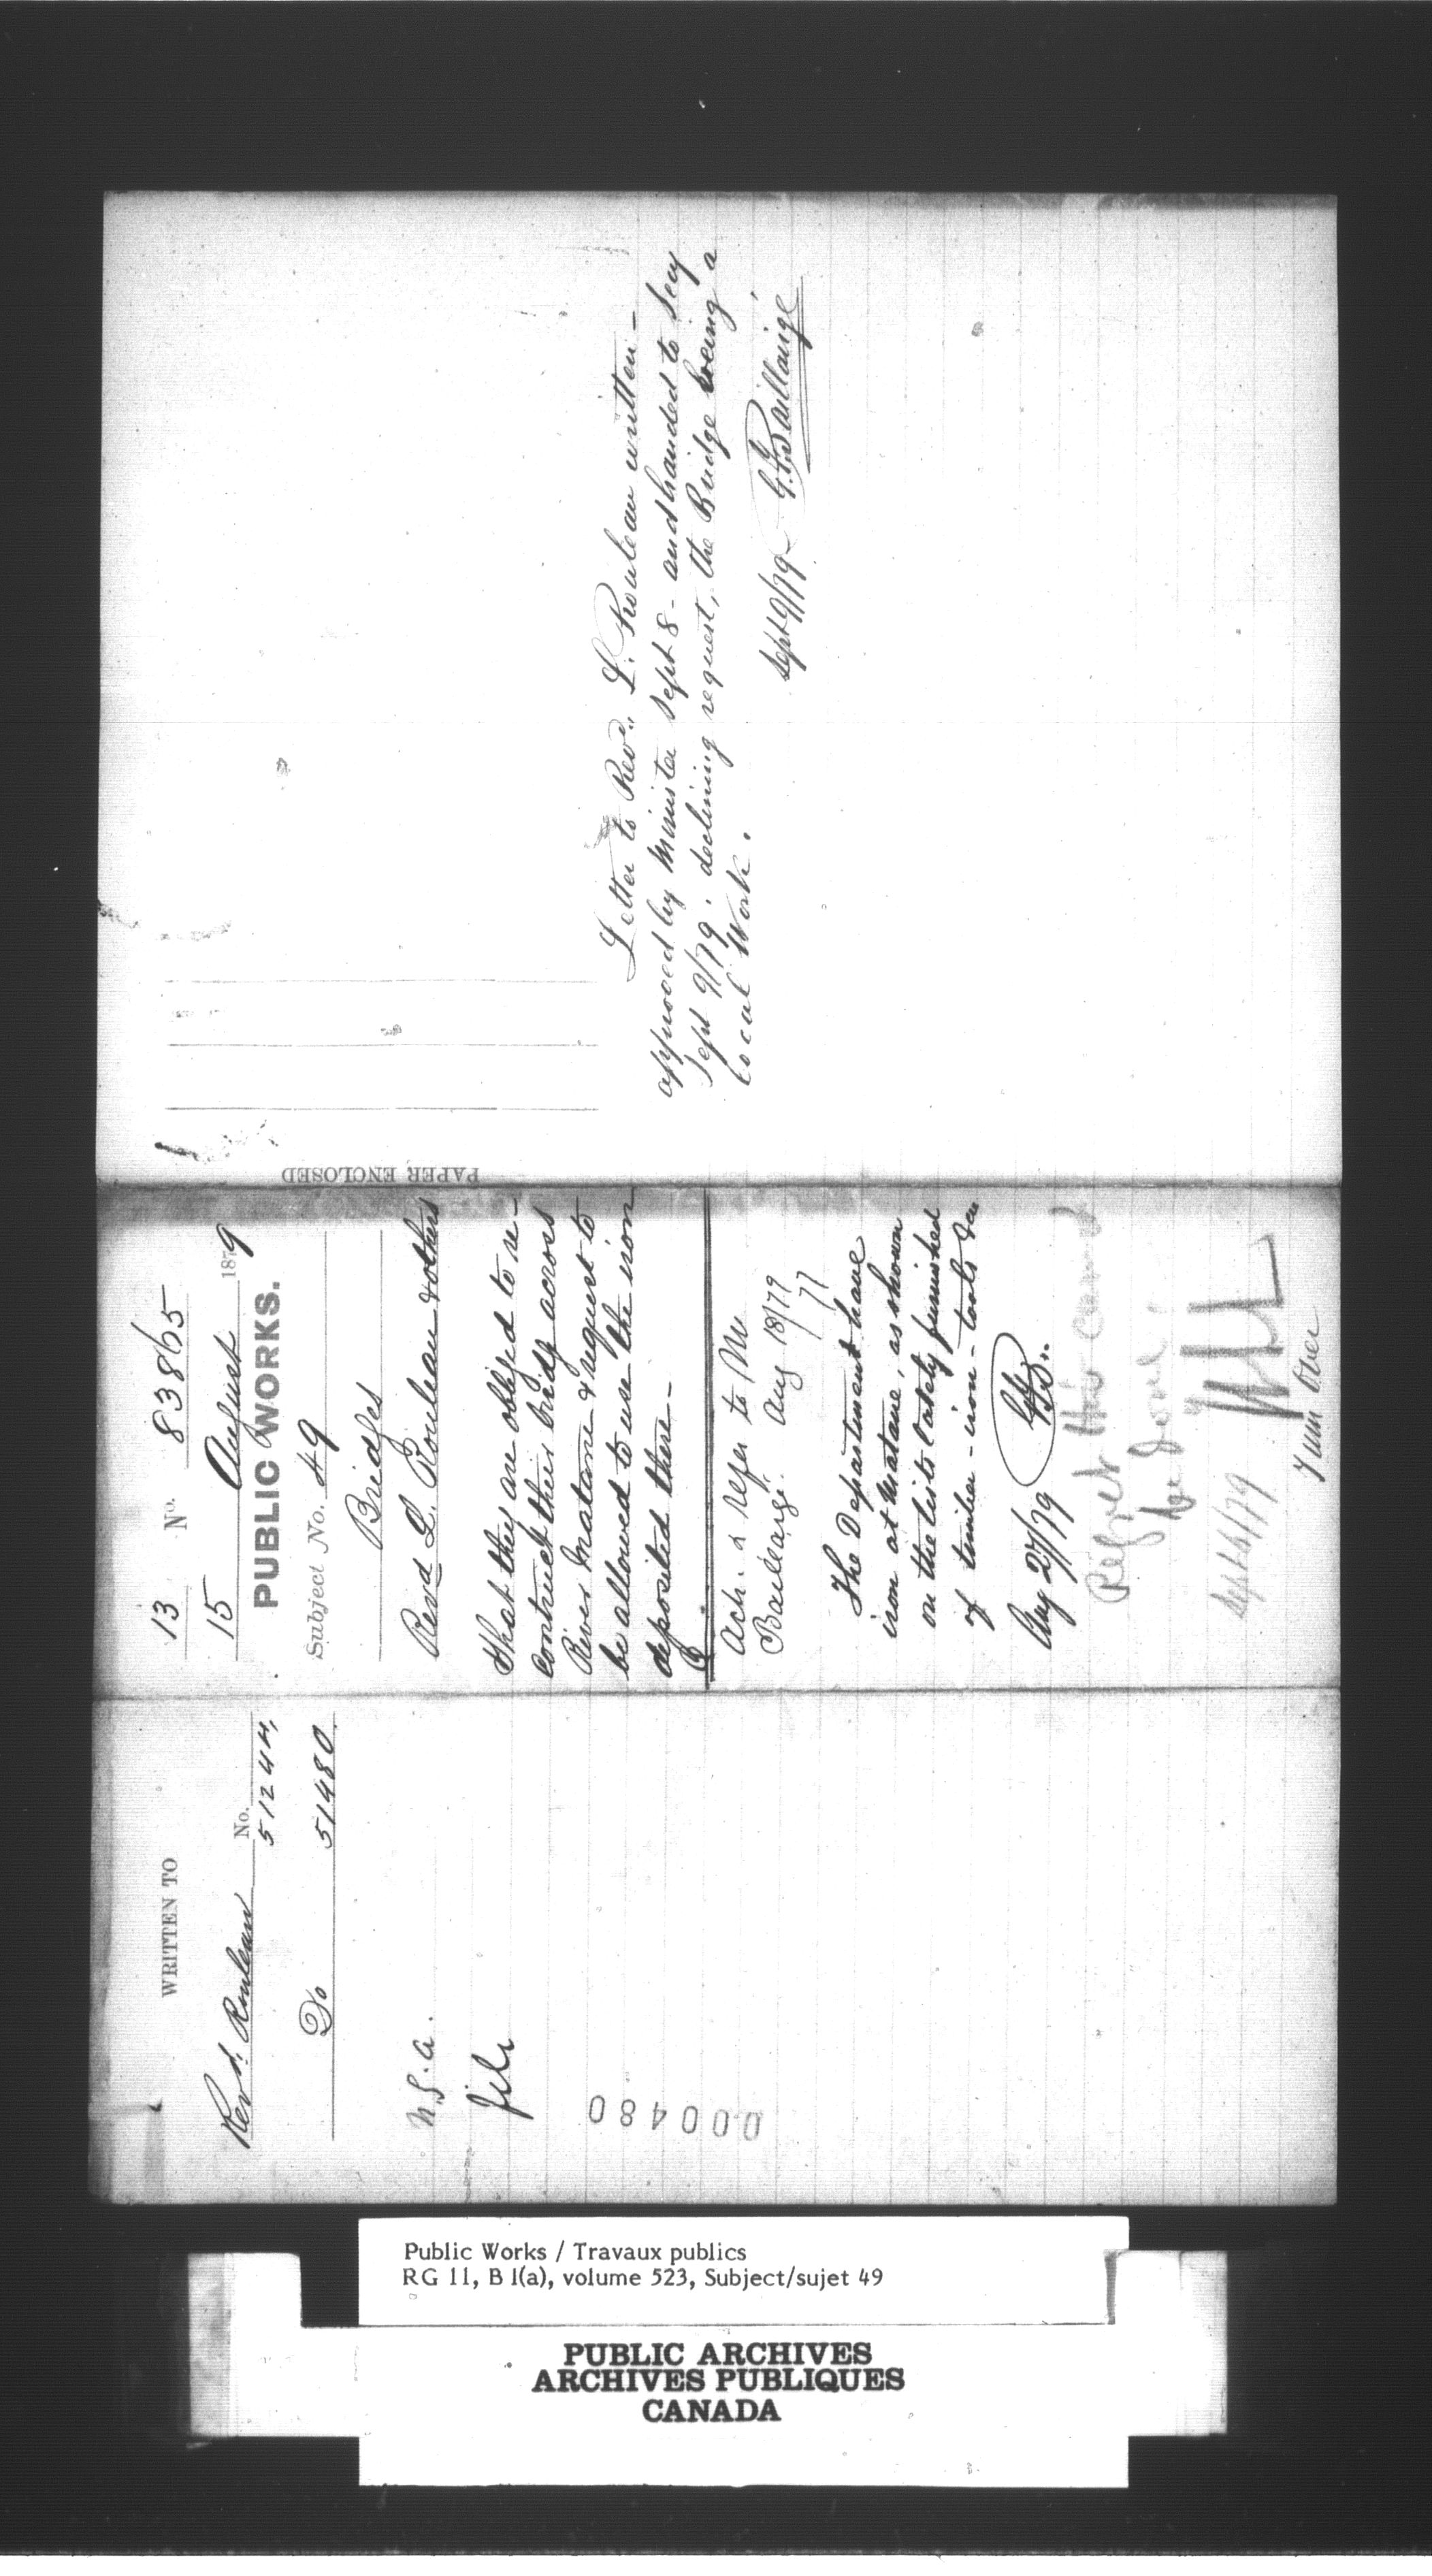 WRITTEN TO
No.
Revd. Rouleau 51244
Do 51480
N.S.A.
file
000480
13 No. 83865
15 August 1879
PUBLIC WORKS.
Subject No. 49
Bridges
Revd L. Rouleau & others
That they are obliged to re-
construct their bridge across
River Matane & request to
be allowed to use the iron
deposited there -
Ack. & refer to Mr
Baillargé. Aug 18/79
The Department have
iron at Matane, as shown
on the lists lately furnished
of timber - iron - tools &ca
Aug 27/79 GFB.
Regret this cannot
be done.
Sept 6/79
Turn Over
PAPER ENCLOSED
Letter to Revd. L. Rouleau written -
approved by Minister Sept 8 - and handed to Secy
Sept 9/79. declining request, the Bridge being a
local Work.
Sept 9/79 - G.F. Baillairgé
Public Works / Travaux publics
RG 11, B 1(a), volume 523, Subject/sujet 49
PUBLIC ARCHIVES
ARCHIVES PUBLIQUES
CANADA